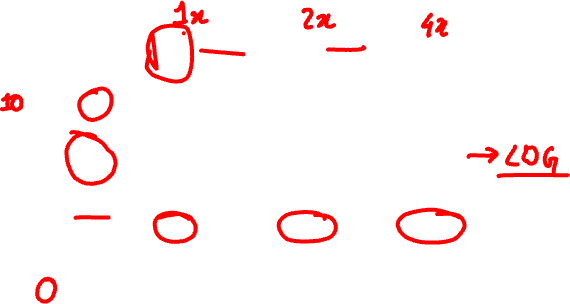 1x 2x 4x
10
→ LOG
0